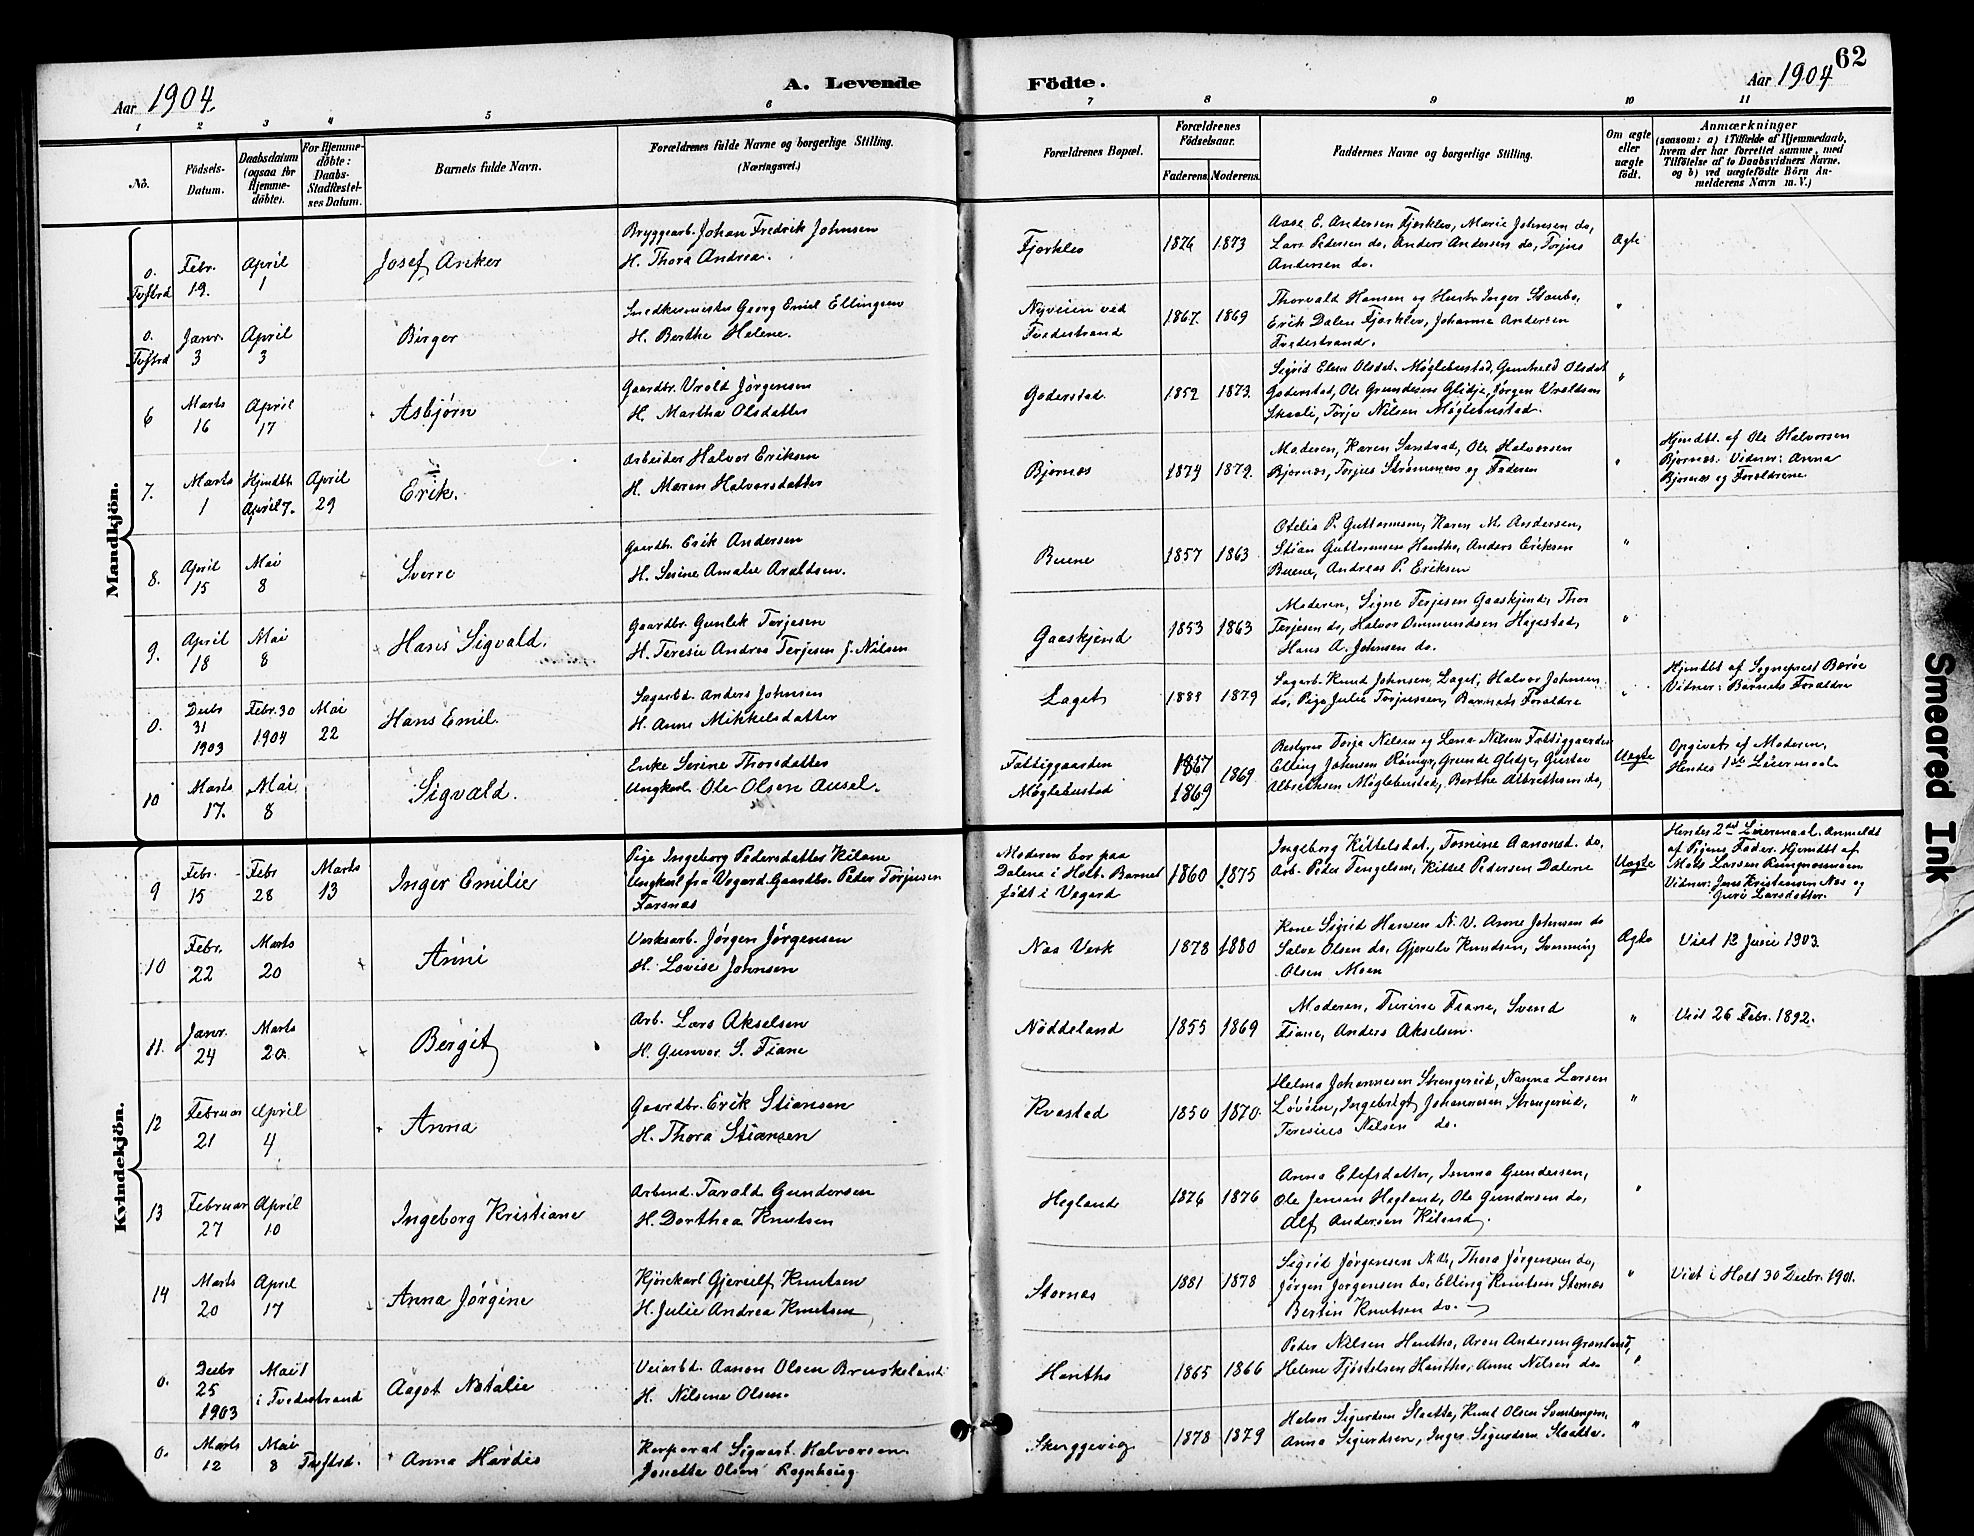 62
Aar 1904.
A. Levende
Födte.
Aar 1904
1 2 3 4 5 6 7 8 9 10 11
No.
Födsels-
Datum.
Daabsdatum
(ogsaa for
Hjemme-
döbte).
For Hjemme-
döbte:
Daabs-
Stadfæstel-
ses Datum.
Barnets fulde Navn.
Forældrenes fulde Navne og borgerlige Stilling.
(Næringsvei.)
Forældrenes Bopæl.
Forældrenes
Födselsaar.
Faderens. Moderens.
Faddernes Navne og borgerlige Stilling.
Om ægte
eller
uægte
födt.
Anmærkninger
(saasom: a) i Tilfælde af Hjemmedaab,
hvem der har forrettet samme, med
Tilföielse af to Daabsvidners Navne,
og b) ved uægtefödte Börn An-
melderens Navn m. V.)
Mandkjön.
0.
Tvfstrd
Febr.
19.
April
1
Josef Anker
Bryggearb. Johan Fredrik Johnsen
H. Thora Andrea.
Fjærklev
1876 1873
Aase E. Andersen Fjærklev, Marie Johnsen do,
Lars Pedersen do, Anders Andersen do, Torjus
Andersen do.
Ægte
0.
Tvfstrd
Janr.
3
April
3
Birger
Snedkermester Georg Emil Ellingsen
H. Berthe Helene.
Nyveien ved
Tvedestrand
1867. 1869
Thorvald Hansen og Hustr. Inger Staubo,
Erik Dalen Fjærklev, Johanna Andersen
Tvedestrand.
"
6
Marts
16
April
17
Asbjørn
Gaardbr. Vrold Jørgensen
H. Martha Olsdatter
Goderstad
1852 1873.
Sigrid Elen Olsdat. Møglebustad, Gunhild Olsdat
Goderstad, Ole Grundesen Glidje, Jørgen Vraldsen
Skaali, Torje Nilsen Møglebustad.
"
7.
Marts
1
Hjemdbt.
April 7.
April
29
Erik.
Arbeider Halvor Eriksen
H. Maren Halvorsdatter
Bjørnæs
1874 1879.
Moderen, Karen Sandnad, Ole Halvorsen
Bjørnæs, Torjus Strømmen og Faderen
"
Hjemdbt. af Ole Halvorsen
Bjørnæs: Vidner: Anna
Bjørnæs og Forældrene
8.
April
15
Mai
8
Sverre
Gaardbr. Erik Andersen
H. Serine Amalie Avaldsen.
Buene
1857 1863
Otelia P. Guttormsen, Karen M. Andersen,
Stian Guttormsen Hantho, Anders Eriksen
Buene, Andreas P. Eriksen
"
9.
April
18
Mai
8
Hans Sigvald.
Gaardbr. Gunlek Terjesen
H. Teresie Andrea Terjesen f. Nilsen
Gaaskjend
1853 1863
Moderen, Signe Terjesen Gaaskjend, Thor
Terjesen do, Halvor Ommundsen Hagestad,
Hans A. Johnsen do.
"
0.
Decbr
31
1903
Febr. 30
1904
Mai
22
Hans Emil.
Sagarbd. Anders Johnsen
H. Anne Mikkelsdatter
Laget
1888 1879
Sagarb. Knud Johnsen, Laget, Halvor Johnsen
do, Pige Julie Torjussen, Barnets Forældre
"
Hjemdbt af Sogneprest Barøe
Vidner: Barnets Forældre
10
Marts
17.
Mai
8
Sigvald.
Enke Serine Thorsdatter
Ungkarl Ole Olsen Ausel.
Fattiggaarden
Møglebustad
1867
1869
1869
Bestyrer Torje Nilsen og Lena Nilsen Fattiggaarden
Elling Johnsen Ramyr, Grunde Glidje, Gustav
Albrethsen Møglebustad, Berthe Albrethsen do,
Uægte
Opgivet af Moderen,
Hendes 1ste Leiermaal.
Kvindekjön.
9
Febr.
15
Febr
28
Marts
13
Inger Emilie
Pige Ingeborg Pedersdatter Kilane
Ungkarl fra Vegard. Gaardbr. Peder Torjusen
Farsnæs
Moderen bor paa
Dalene i Holt. Barnet
født i Vegard
1860 1875
Ingeborg Kittelsdat., Tomine Aanonsd. do,
Arb. Peder Tengelsen, Kittel Pedersen Dalene
Uægte
Hendes 2det Leiermaal. Anmeldt
af Pigens Fader. Hjemdbt af
Mats Larsen Ramyrmoen
Vidner: Jens Kristensen Næs og
Guro Larsdatter.
10
Febr.
22
Marts
20
Anni
Verksarb. Jørgen Jørgensen
H. Lovise Johnsen
Næs Verk
1878 1880
Kone Sigrid Hansen N. V. Anne Johnsen do
Salve Olsen do, Gjerulv Knudsen, Svenning
Olsen Moen
Ægte
Viet 12 Juni 1903.
11.
Janr.
24
Marts
20.
Bergit
Arb. Lars Akselsen
H. Gunvor S. Fiane
Nøddeland
1855 1869
Moderen, Turine Fiane, Svend
Fiane, Anders Akselsen.
"
Viet 26 Febr. 1892.
12
Februar
21
April
4
Anna
Gaardbr. Erik Stiansen
H. Thora Stiansen
Kvastad
1850 1870.
Helma Johannesen Strengereid, Nanna Larsen
Løvåen, Ingebrigt Johannesen Strengereid,
Teresius Nilsen do.
"
13
Februar
27
April
10
Ingeborg Kristiane
Arbeid. Tarald Gundersen
H. Dorthea Knutsen
Heglands
1876 1876
Anna Elefsdatter, Emma Gundersen,
Ole Jensen Hegland, Ole Gundersen do,
Alf Andersen Kiland.
"
14
Marts
20
April
17
Anna Jørgine
Kjørekarl Gjerulf Knutsen
H. Julie Andrea Knutsen
Stornæs
1881 1878
Sigrid Jørgensen N.V., Thora Jørgensen do,
Jørgen Jørgensen do, Elling Knutsen Stornæs
Bertin Knutsen do.
"
Viet i Holt 30 Decbr. 1901.
0.
Decbr
25
1903
Mai 1
i Tvedestrand
Aagot Natalie
Veiarbd. Aanon Olsen Bruskeland
H. Nilsene Olsen.
Hantho
1865 1866
Peder Nilsen Hantho, Aron Andersen Grønland,
Helene Fjøstelsen Hantho, Anne Nilsen do
"
0.
Marts
12
Mai
8
Tvftsd.
Anna Hardis
Korporal Sigvart Halvorsen
Jonette Olsen Rognhaug
Skjeggevig
1878 1879
Halvor Sigurdsen Slaatta, Knut Olsen Svenstangen,
Anna Sigurdsen, Inger Sigurdsen Slaatta.
"
Smeared Ink